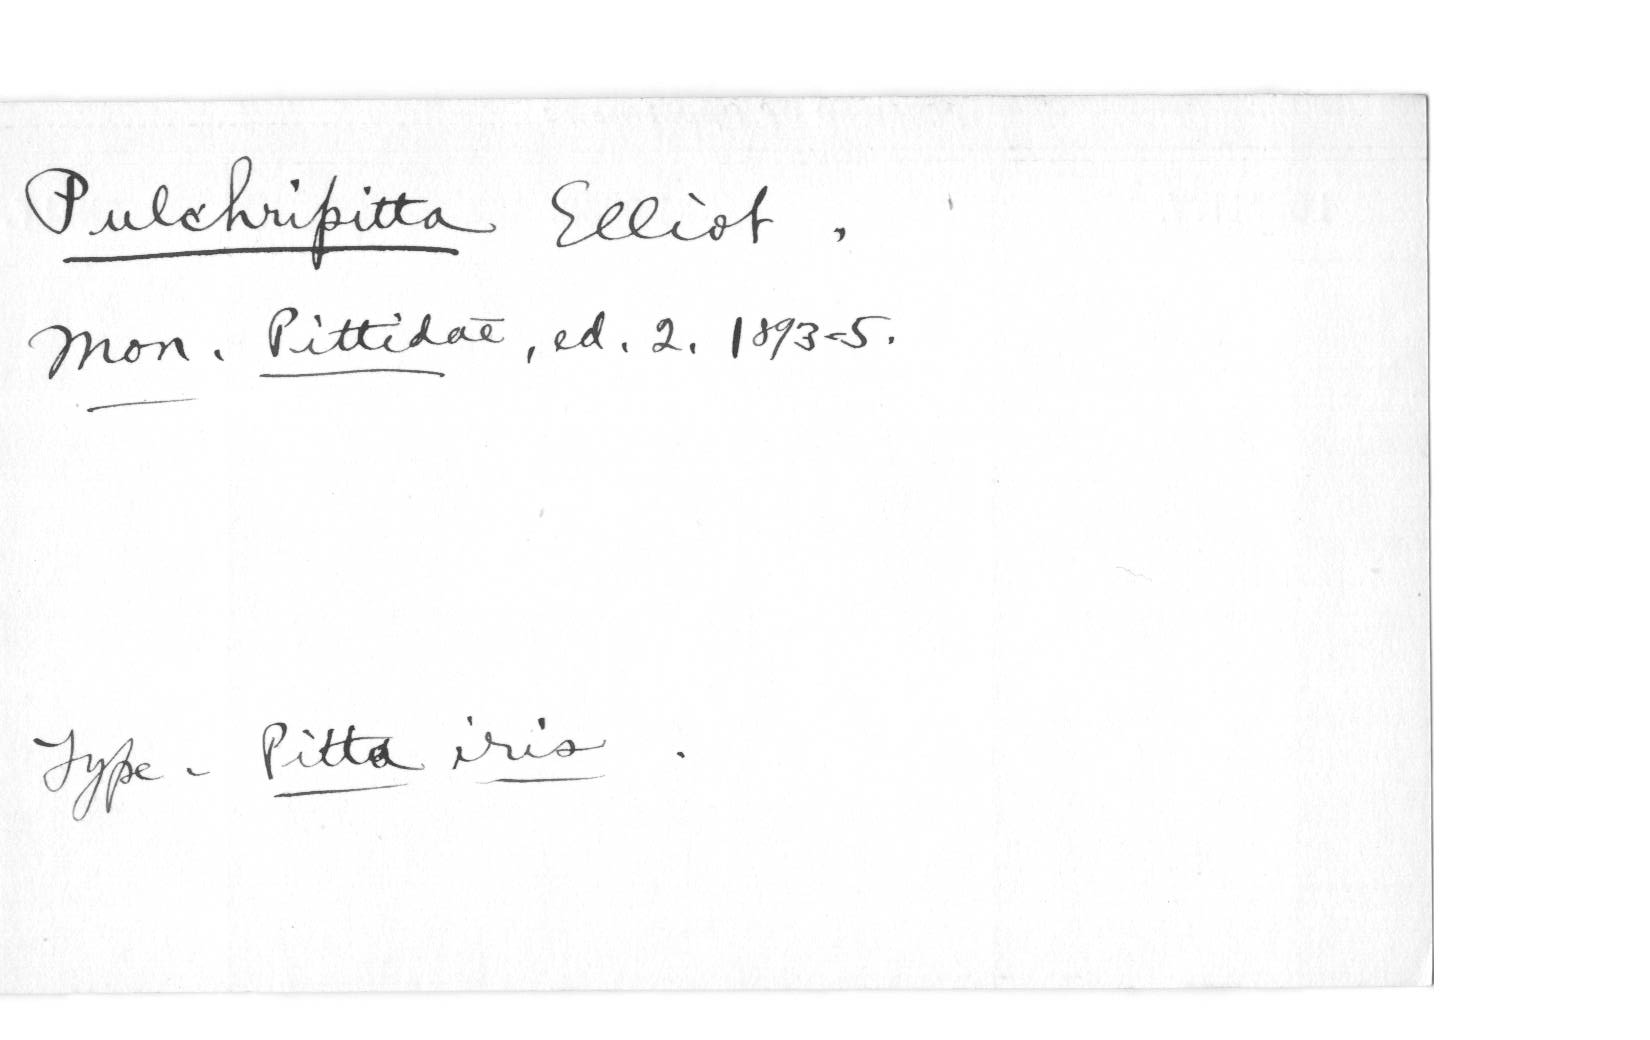 Pulchripitta Elliot.
Mon. Pittidae, ed. 2. 1893-5.
Type - Pitta iris.